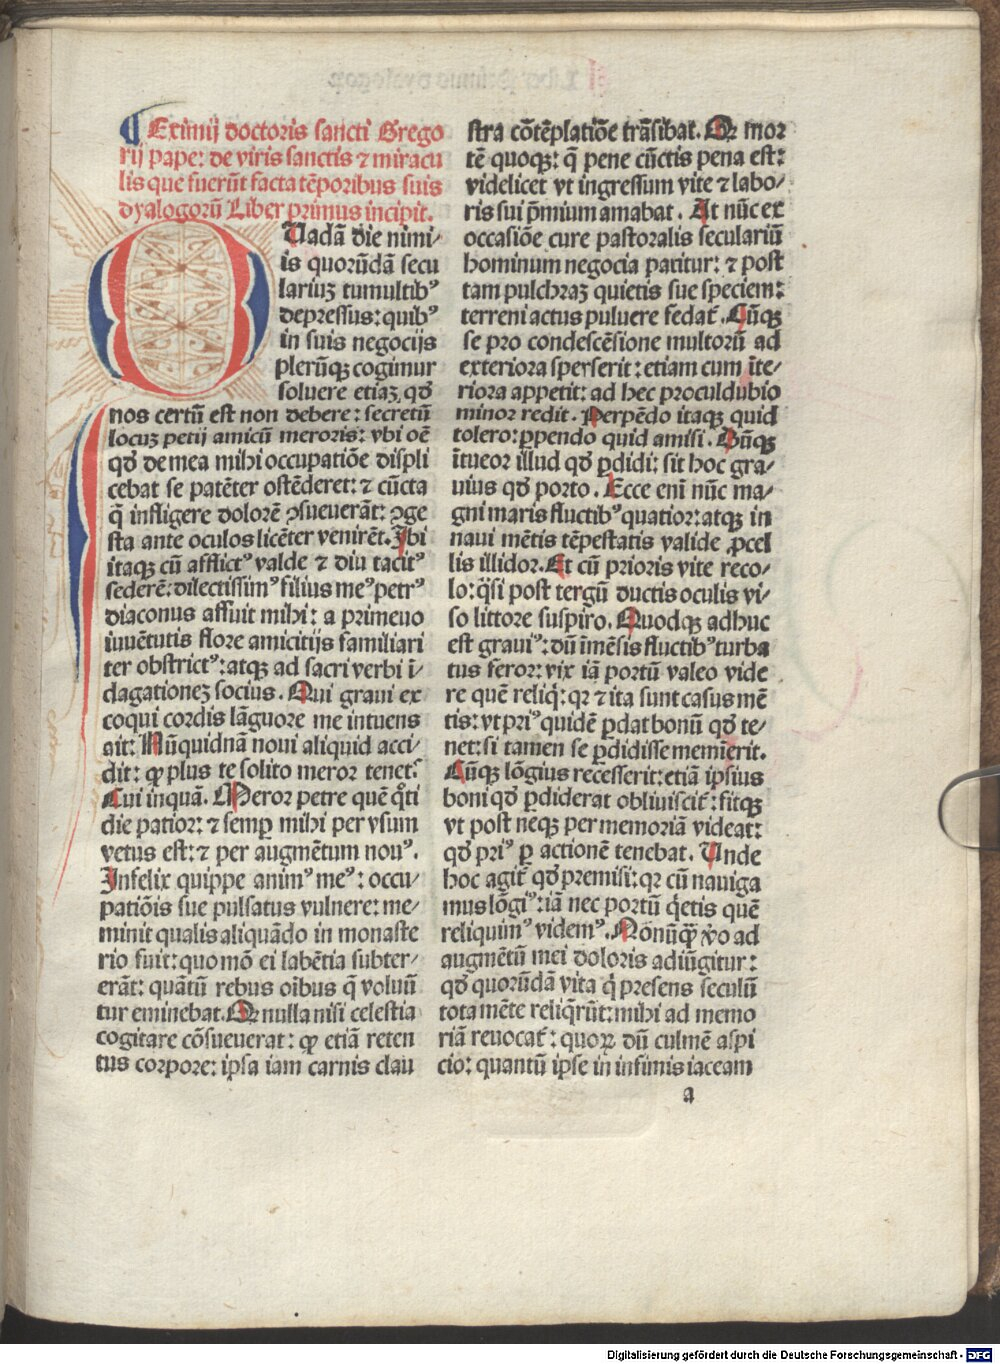 ¶ Eximij doctoris sancti Grego
rij pape: de viris sanctis ⁊ miracu
lis que fuerūt facta tēporibus suis
dyalogorū Liber primus incipit.
QVadā die nimi⸗
is quorūdā secu
lariuꝫ tumultibꝰ
depressus: quibꝰ
in suis negocijs
plerūqꝫ cogimur
soluere etiaꝫ qđ
nos certū est non debere: secretū
locuꝫ petij amicū meroris: vbi oē
qđ de mea mihi occupatiōe displi
cebat se patēter ostēderet: ⁊ cūcta
q̄ infligere dolorē ꝯsueuerāt: ꝯge
sta ante oculos licēter venirēt. Ibi
itaqꝫ cū afflictꝰ valde ⁊ diu tacitꝰ
sederē: dilectissimꝰ filius meꝰ petrꝰ
diaconus affuit mihi: a primeuo
iuuētutis flore amicitijs familiari
ter obstrictꝰ: atqꝫ ad sacri verbi ī⸗
dagationeꝫ socius. Qui graui ex
coqui cordis lāguore me intuens
ait: Nūquidnā noui aliquid acci⸗
dit: ꝙ plus te solito meror tenet?
Cui inquā. Meror petre quē q̊ti
die patior: ⁊ semꝑ mihi per vsum
vetus est: ⁊ per augmētum nouꝰ.
Infelix quippe animꝰ meꝰ: occu⸗
patiōis sue pulsatus vulnere: me⸗
minit qualis aliquādo in monaste
rio fuit: quomō ei labētia subter⸗
erāt: quātū rebus oībus q̄ voluū
tur eminebat. Qꝛ nulla nisi celestia
cogitare cōsueuerat: ꝙ etiā reten
tus corpore: ipsa iam carnis clau
stra cōtēplatiōe trāsibat. Qꝛ mor
tē quoqꝫ: q̄ pene cūctis pena est:
videlicet vt ingressum vite ⁊ labo⸗
ris sui p̄mium amabat. At nūc ex
occasiōe cure pastoralis seculariū
hominum negocia patitur: ⁊ post
tam pulchraꝫ quietis sue speciem:
terreni actus puluere fedat̄. Cūqꝫ
se pro condescēsione multorū ad
exteriora sperserit: etiam cum īte⸗
riora appetit: ad hec proculdubio
minor redit. Perpēdo itaqꝫ quid
tolero: ꝑpendo quid amisi. Dūqꝫ
ītueor illud qđ ꝑdidi: fit hoc gra⸗
uius qđ porto. Ecce enī nūc ma⸗
gni maris fluctibꝰ quatior: atqꝫ in
naui mētis tēpestatis valide ꝓcel
lis illidor. Et cū prioris vite reco⸗
lo: q̈si post tergū ductis oculis vi⸗
so littore suspiro. Quodqꝫ adhuc
est grauiꝰ: dū īmēsis fluctibꝰ turba
tus feror: vix iā portū valeo vide
re quē reliq̇: qꝛ ⁊ ita sunt casus mē
tis: vt priꝰ quidē ꝑdat bonū qđ te⸗
net: si tamen se ꝑdidisse memīerit.
Cūqꝫ lōgius recesserit: etiā ipsius
boni qđ ꝑdiderat obliuiscit̄: fitqꝫ
vt post neqꝫ per memoriā videat:
qđ priꝰ ꝑ actionē tenebat. Unde
hoc agit̄ qđ premisi: qꝛ cū nauiga
mus lōgiꝰ: iā nec portū q̇etis quē
reliquimꝰ videmꝰ. Nōnūq̄ꝫ v̊o ad
augmētū mei doloris adiūgitur:
qđ quorūdā vita q̇ presens seculū
tota mēte reliq̇rūt: mihi ad memo
riā reuocat̄: quoꝝ dū culmē aspi
cio: quantū ipse in infimis iaceam
a
Digitalisierung gefördert durch die Deutsche Forschungsgemeinschaft - DFG